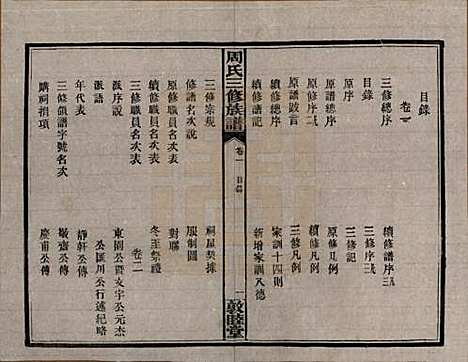 目錄
卷一
三修總序
續修譜序三
目錄
三修序三
原序
三修記
原修序二
原修凡例
原譜跋言
續修凡例
續修序
三修凡例
續修譜記
家訓十四則
新增家訓入德
周氏三修族譜
卷一
目錄
一
敦睦堂
三修宗規
祠屋契據
修譜名次說
服制圖
原修職員名次表
對聯
續修職員名次表
冬至祭禮
三修職員名次表
卷二
派序說
東園公暨支宇公元杰
派語
公匯川公行述紀略
年代表
靜軒公傳
三修領譜字號名次
敬齋公傳
購祠捐項
慶甫公傳